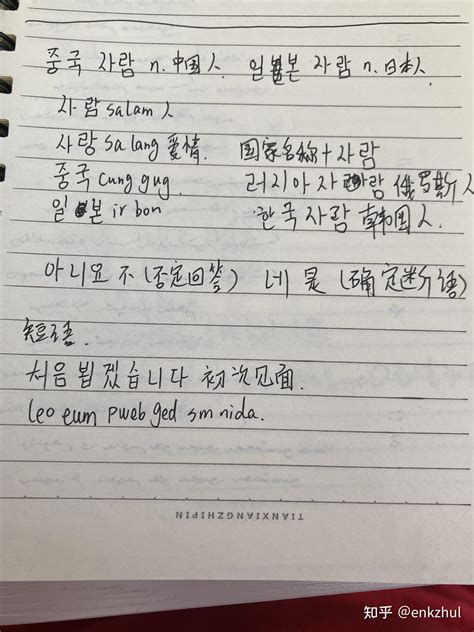 중국 사람 n. 中国人. 일본 사람 n. 日本人.
사람 salam 人
사랑 sa lang 爱情. 国家名称+사람
중국 cung gug. 러시아 사람 俄罗斯人
일본 ir bon 한국 사람 韩国人.
아니요 不 (否定回答) 네 是 (确定断语)
短语.
처음 봽겠습니다 初次见面.
leo eum pweb ged sm nida.
TIANXIANGZHIPIN
知乎 @enkzhul